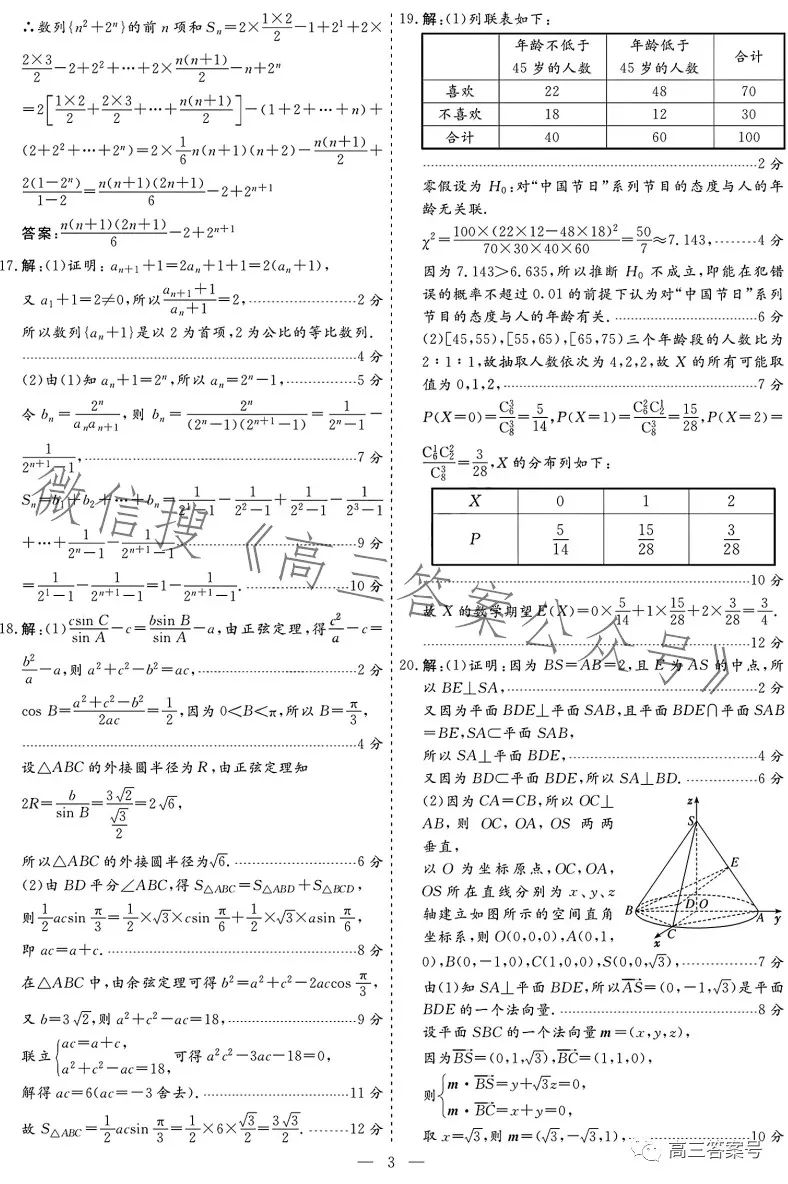 ∴数列{n²+2ⁿ}的前 n 项和 Sₙ=2×(1×2)/2-1+2¹+2×
(2×3)/2-2+2²+…+2×n(n+1)/2-n+2ⁿ
=2[(1×2)/2+(2×3)/2+…+n(n+1)/2]-(1+2+…+n)+
(2+2²+…+2ⁿ)=2×1/6n(n+1)(n+2)-n(n+1)/2+
2(1-2ⁿ)/(1-2)=n(n+1)(2n+1)/6-2+2ⁿ⁺¹
答案:n(n+1)(2n+1)/6-2+2ⁿ⁺¹
17.解:(1)证明: aₙ₊₁+1=2aₙ+1+1=2(aₙ+1),
又 a₁+1=2≠0,所以(aₙ₊₁+1)/(aₙ+1)=2,…………………2 分
所以数列{aₙ+1}是以 2 为首项,2 为公比的等比数列.
…………………4 分
(2)由(1)知 aₙ+1=2ⁿ,所以 aₙ=2ⁿ-1,……………5 分
令 bₙ=2ⁿ/(aₙaₙ₊₁), 则 bₙ=2ⁿ/((2ⁿ-1)(2ⁿ⁺¹-1))=1/(2ⁿ-1)-
1/(2ⁿ⁺¹-1),…………………7 分
Sₙ=b₁+b₂+…+bₙ=1/(2¹-1)-1/(2²-1)+1/(2²-1)-1/(2³-1)
+…+1/(2ⁿ-1)-1/(2ⁿ⁺¹-1)…………………9 分
=1/(2¹-1)-1/(2ⁿ⁺¹-1)=1-1/(2ⁿ⁺¹-1).…………………10 分
18.解:(1)csin C/sin A-c=bsin B/sin A-a,由正弦定理,得c²/a-c=
b²/a-a,则 a²+c²-b²=ac,…………………2 分
cos B=(a²+c²-b²)/2ac=1/2,因为 0<B<π,所以 B=π/3,
…………………4 分
设△ABC 的外接圆半径为 R,由正弦定理知
2R=b/sin B=3√2/(√3/2)=2√6,
所以△ABC 的外接圆半径为√6.…………………6 分
(2)由 BD 平分∠ABC,得 S△ABC=S△ABD+S△BCD,
则1/2acsin π/3=1/2×√3×csin π/6+1/2×√3×asin π/6,
即 ac=a+c.…………………8 分
在△ABC 中,由余弦定理可得 b²=a²+c²-2accos π/3,
又 b=3√2,则 a²+c²-ac=18,…………………9 分
联立{ac=a+c, a²+c²-ac=18,可得 a²c²-3ac-18=0,
解得 ac=6(ac=-3 舍去).…………………11 分
故 S△ABC=1/2acsin π/3=1/2×6×√3/2=3√3/2.………12 分
19.解:(1)列联表如下:
年龄不低于45 岁的人数 年龄低于45 岁的人数 合计
喜欢 22 48 70
不喜欢 18 12 30
合计 40 60 100
…………………2 分
零假设为 H₀:对“中国节日”系列节目的态度与人的年
龄无关联.
χ²=100×(22×12-48×18)²/(70×30×40×60)=50/7≈7.143,………4 分
因为 7.143>6.635,所以推断 H₀ 不成立,即能在犯错
误的概率不超过 0.01 的前提下认为对“中国节日”系列
节目的态度与人的年龄有关.…………………6 分
(2)[45,55),[55,65),[65,75)三个年龄段的人数比为
2∶1∶1,故抽取人数依次为 4,2,2,故 X 的所有可能取
值为 0,1,2,…………………7 分
P(X=0)=C₆³/C₈³=5/14,P(X=1)=C₆²C₂¹/C₈³=15/28,P(X=2)=
C₆¹C₂²/C₈³=3/28,X 的分布列如下:
X 0 1 2
P 5/14 15/28 3/28
…………………10 分
故 X 的数学期望 E(X)=0×5/14+1×15/28+2×3/28=3/4.
…………………12 分
20.解:(1)证明:因为 BS=AB=2,且 E 为 AS 的中点,所
以 BE⊥SA,…………………2 分
又因为平面 BDE⊥平面 SAB,且平面 BDE∩平面 SAB
=BE,SA⊂平面 SAB,
所以 SA⊥平面 BDE,…………………4 分
又因为 BD⊂平面 BDE,所以 SA⊥BD.……………6 分
(2)因为 CA=CB,所以 OC⊥
AB, 则 OC, OA, OS 两 两
垂直,
以 O 为坐标原点,OC,OA,
OS 所在直线分别为 x、y、z
轴建立如图所示的空间直角
坐标系,则 O(0,0,0),A(0,1,
z
S
E
B
D
O
A
y
C
x
0),B(0,-1,0),C(1,0,0),S(0,0,√3),……………7 分
由(1)知 SA⊥平面 BDE,所以AS→=(0,-1,√3)是平面
BDE 的一个法向量.…………………8 分
设平面 SBC 的一个法向量 m=(x,y,z),
因为BS→=(0,1,√3),BC→=(1,1,0),
则{m·BS→=y+√3z=0,
m·BC→=x+y=0,
取 x=√3,则 m=(√3,-√3,1),…………………10 分
— 3 —
微信搜《高三答案公众号》
高三答案号